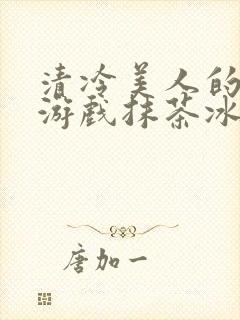 清冷美人的
游戏抹茶冰
唐加一